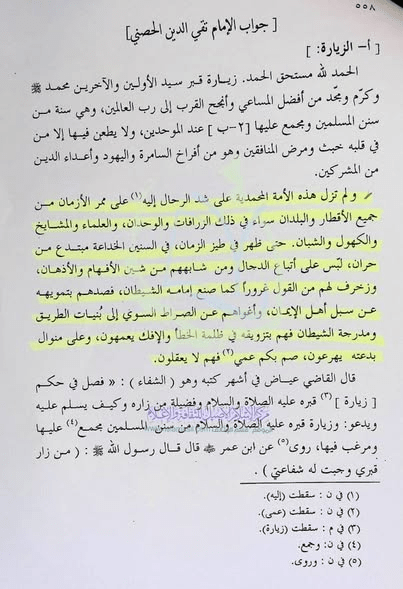 ٥٥٨
[ جواب الإمام تقي الدين الحصني]
[ أ- الزيارة: ]
الحمد لله مستحق الحمد. زيارة قبر سيد الأولين والآخرين محمد ﷺ
وكرّم ومجّد من أفضل المساعي وأنجح القرب إلى رب العالمين، وهي سنة من
سنن المسلمين ومجمع عليها [٢-ب ] عند الموحدين، ولا يطعن فيها إلا من
في قلبه خبث ومرض المنافقين وهو من أفراخ السامرة واليهود وأعداء الدين
من المشركين.
ولم تزل هذه الأمة المحمدية على شد الرحال إليه(١) على ممر الأزمان من
جميع الأقطار والبلدان سواء في ذلك الزرافات والوحدان، والعلماء والمشايخ
والكهول والشبان. حتى ظهر في طيز الزمان، في السنين الخداعة مبتدع من
حران، لبّس على أتباع الدجال ومن شابههم من شين الأفهام والأذهان،
وزخرف لهم من القول غروراً كما صنع إمامه الشيطان، فصدهم بتمويهه
عن سبل أهل الإيمان، وأغواهم عن الصراط السوي إلى بُنيات الطريق
ومدرجة الشيطان فهم بتزويقه في ظلمة الخطأ والإفك يعمهون، وعلى منوال
بدعته يهرعون، صم بكم عمي(٢) فهم لا يعقلون.
قال القاضي عياض في أشهر كتبه وهو ( الشفاء ) : « فصل في حكم
[ زيارة ] (٣) قبره عليه الصلاة والسلام وفضيلة من زاره وكيف يسلم عليه
ويدعو: وزيارة قبره عليه الصلاة والسلام من سنن المسلمين مجمع(٤) عليها
ومرغب فيها، روى(٥) عن ابن عمر قال قال رسول الله ﷺ : ( من زار
قبري وجبت له شفاعتي ) .
(١) في ن : سقطت (إليه).
(٢) في ن : سقطت (عمى).
(٣) في م : سقطت (زيارة).
(٤) في ن: وجمع.
(٥) في ن: وروى.